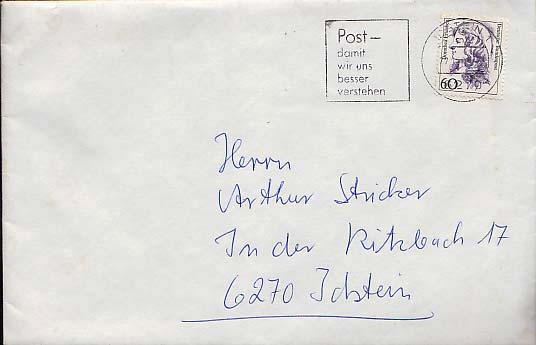 Post –
damit
wir uns
besser
verstehen
60
Herrn
Arthur Stricker
In der Ritzbach 17
6270 Idstein